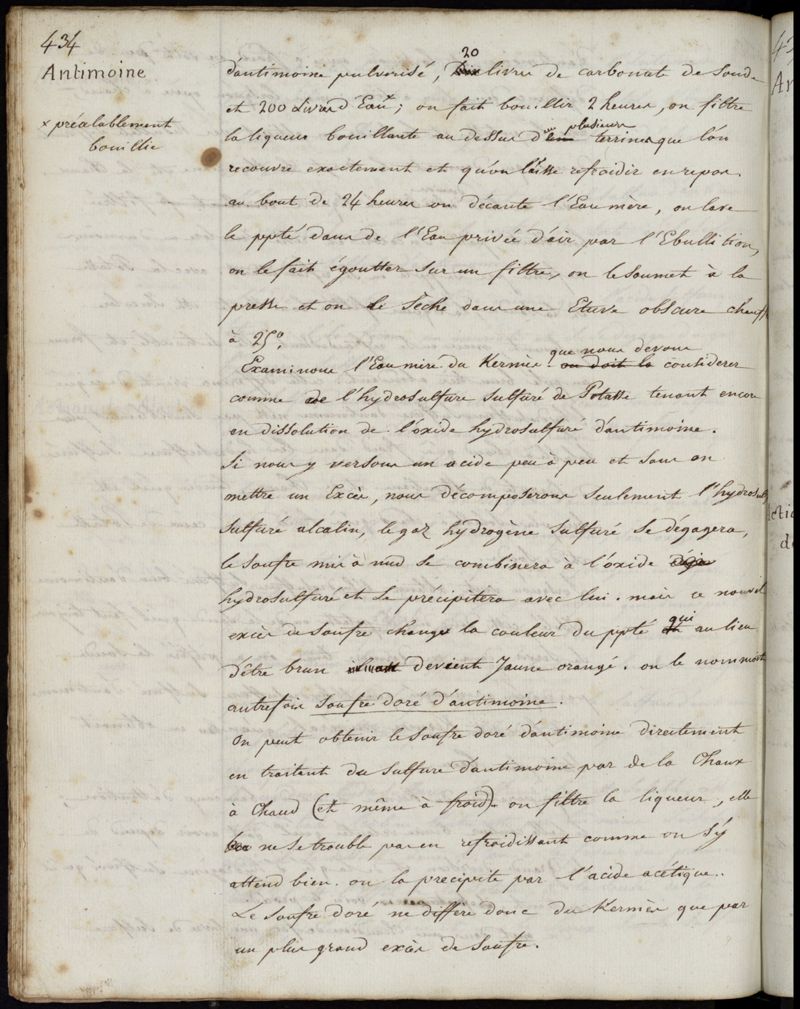 434
Antimoine
x préalablement
bouillie
20
d'antimoine pulverisé, livres de carbonate de Soude
et 200 Livres d'Eau x; on fait bouillir 2 heures, on filtre
plusieurs
la liqueur bouillante au dessus d'un terrines que l'on
recouvre exactement et qu'on laisse refroidir en repos.
au bout de 24 heures on décante l'Eau mère, on lave
le ppté dans de l'Eau privée d'air par l'Ebullition,
on le fait égoutter sur un filtre, on le soumet à la
presse et on le Sèche dans une Etuve obscure chauff
à 25°.
que nous devons
Examinons l'Eau mère du Kermès on doit la considerer
comme de l'hydrosulfure sulfuré de Potasse tenant encore
en dissolution de l'oxide hydrosulfuré d'antimoine.
Si nous y versons un acide peu à peu et sans en
mettre un Excès, nous décomposerons seulement l'hydrosulf
Sulfuré alcalin, le gaz hydrogène sulfuré se dégagera,
le soufre mis à nud se combinera à l'oxide déja
hydrosulfuré et se précipitera avec lui. mais ce nouvel
qui
excès de soufre change la couleur du ppté et au lieu
d'être brun devient Jaune orangé. on le nommait
autrefois soufre doré d'antimoine.
On peut obtenir le soufre doré d'antimoine directement
en traitant du sulfure d'antimoine par de la Chaux
à Chaud (et même à froid). on filtre la liqueur, elle
ne se trouble pas en refroidissant comme on s'y
attend bien. on la precipite par l'acide acétique.
Le soufre doré ne differe donc du Kermès que par
un plus grand excès de soufre.